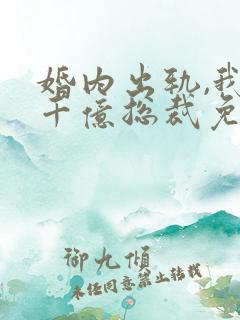 婚内出轨,我
千亿总裁免
御九倾
未经同意禁止转载